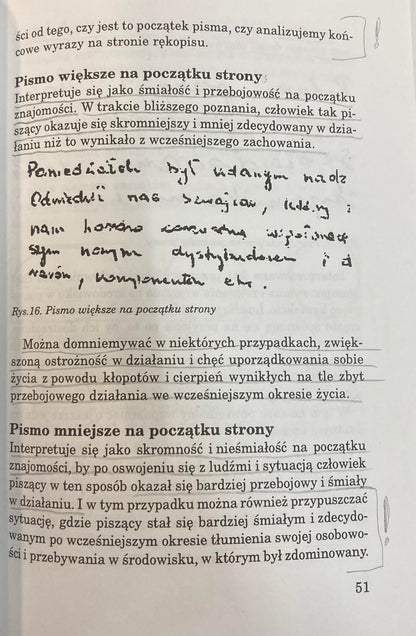 ści od tego, czy jest to początek pisma, czy analizujemy koń-
cowe wyrazy na stronie rękopisu.
Pismo większe na początku strony
Interpretuje się jako śmiałość i przebojowość na początku
znajomości. W trakcie bliższego poznania, człowiek tak pi-
szący okazuje się skromniejszy i mniej zdecydowany w dzia-
łaniu niż to wynikało z wcześniejszego zachowania.
Poniedziałek był udanym
Odwiedzili nas który i
nam
sym nowym dystrybutorem i
komponentów etc.
Rys.16. Pismo większe na początku strony
Można domniemywać w niektórych przypadkach, zwięk-
szoną ostrożność w działaniu i chęć uporządkowania sobie
życia z powodu kłopotów i cierpień wynikłych na tle zbyt
przebojowego działania we wcześniejszym okresie życia.
Pismo mniejsze na początku strony
Interpretuje się jako skromność i nieśmiałość na początku
znajomości, by po oswojeniu się z ludźmi i sytuacją człowiek
piszący w ten sposób okazał się bardziej przebojowy i śmiały
w działaniu. I w tym przypadku można również przypuszczać
sytuację, gdzie piszący stał się bardziej śmiałym i zdecydo-
wanym po wcześniejszym okresie tłumienia swojej osobowo-
ści i przebywania w środowisku, w którym był zdominowany.
51